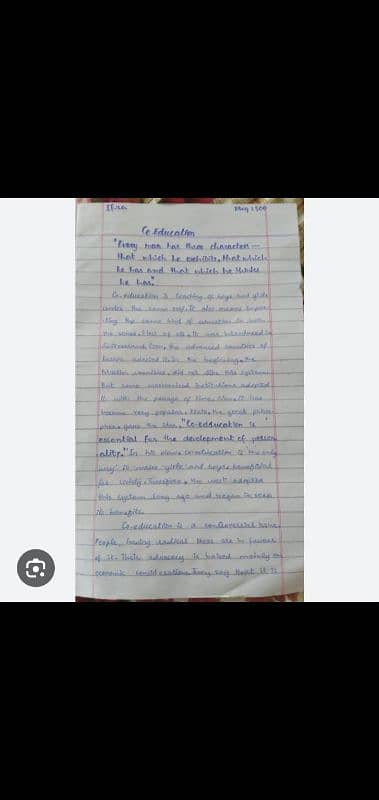 Essay Eng 1500
Co-Education
"Every man has three characters —
that which he exhibits, that which
he has and that which he thinks
he has."
Co-education is teaching of boys and girls
under the same roof. It also means
the same kind of education to both
the sexes.
the advanced countries of
Europe adopted it. In the beginning, the
Muslim countries did not like this system.
But some institutions adopted
it with the passage of time. Now it has
become very popular. Plato, the greek
gave the idea, "Co-education is
essential for the development of person
ality." In his
way. It makes girls and boys beneficial
for society. Therefore, the west adopted
this system long ago and began to reap
its benefits.
Co-education is a controversial issue.
People, having radical ideas are in favour
of it. Their advocacy is based mainly on
economic considerations. They say that it is